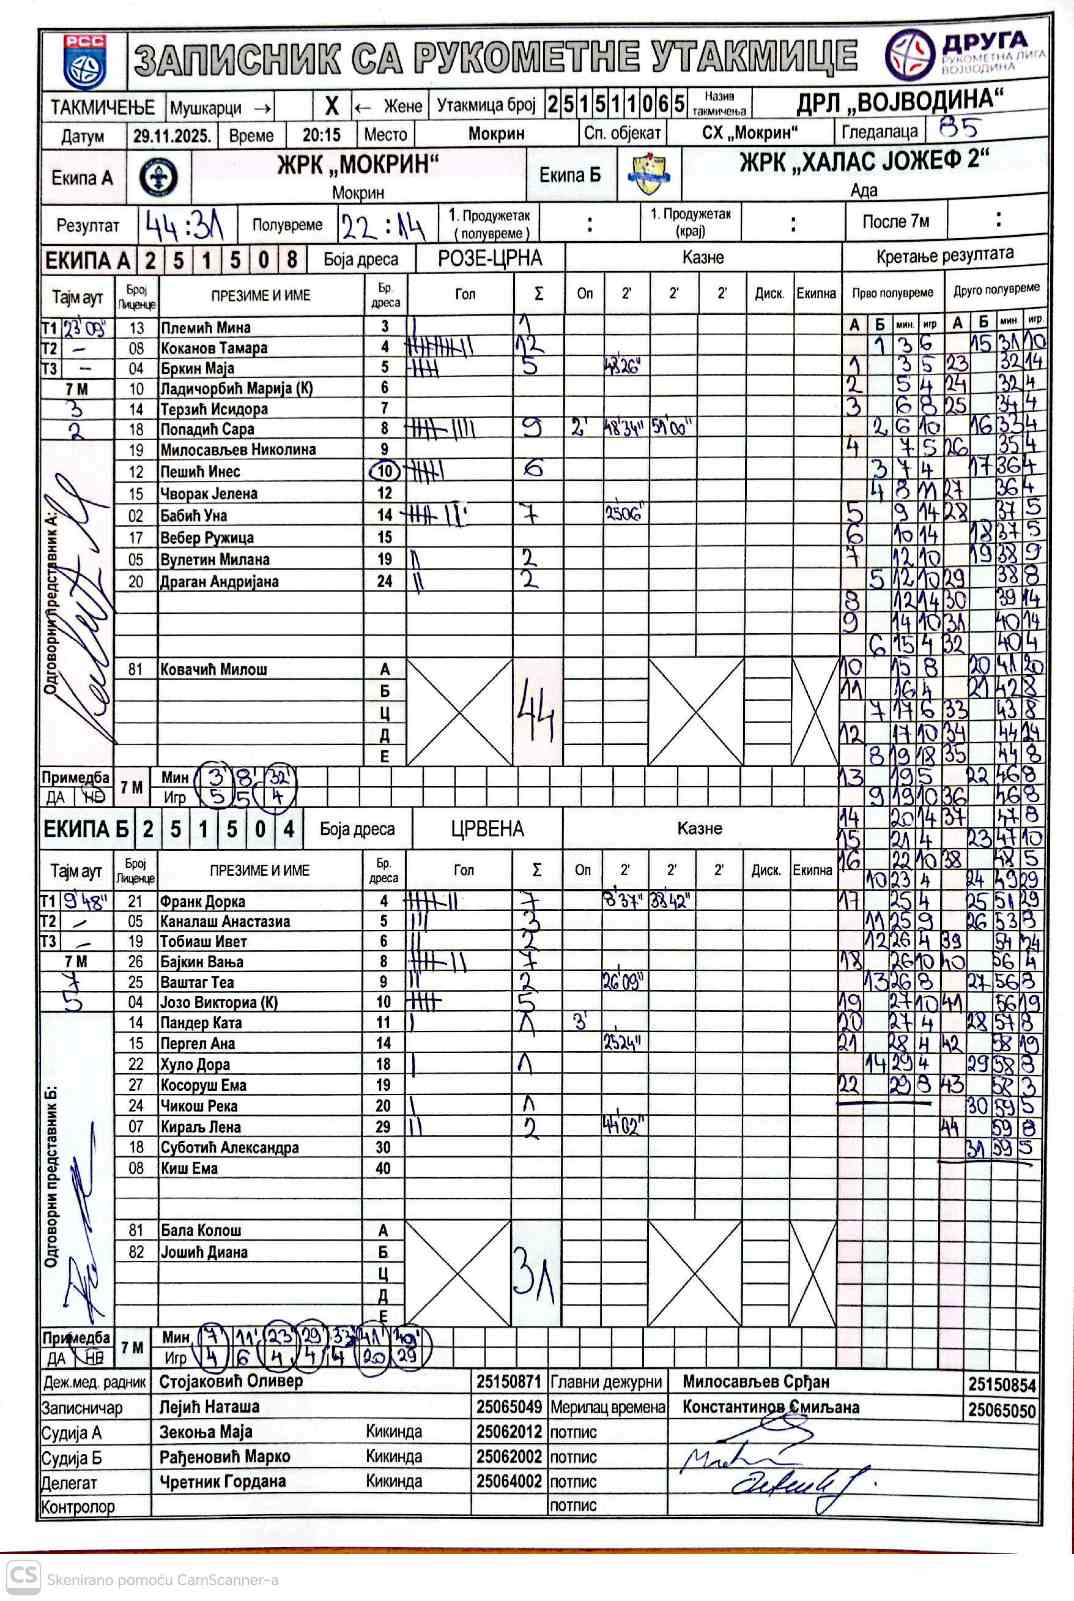 РСС
ЗАПИСНИК СА РУКОМЕТНЕ УТАКМИЦЕ
ДРУГА
РУКОМЕТНА ЛИГА
ВОЈВОДИНА
ТАКМИЧЕЊЕ Мушкарци → X ← Жене Утакмица број 251511065 Назив такмичења ДРЛ „ВОЈВОДИНА“
Датум 29.11.2025. Време 20:15 Место Мокрин Сп. објекат СХ „Мокрин“ Гледалаца 85
Екипа А ЖРК „МОКРИН“ Мокрин Екипа Б ЖРК „ХАЛАС ЈОЖЕФ 2“ Ада
Резултат 44:31 Полувреме 22:14 1. Продужетак (полувреме) : 1. Продужетак (крај) : После 7м :
ЕКИПА А 251508 Боја дреса РОЗЕ-ЦРНА Казне Кретање резултата
Тајм аут Број Лиценце ПРЕЗИМЕ И ИМЕ Бр. дреса Гол Σ Оп 2' 2' 2' Диск. Екипна Прво полувреме Друго полувреме
А Б мин. игр А Б мин игр.
Т1 23'09" 13 Племић Мина 3 1
Т2 – 08 Коканов Тамара 4 12
Т3 – 04 Бркин Маја 5 5 48'26"
7 М 10 Ладичорбић Марија (К) 6
3 14 Терзић Исидора 7
2 18 Попадић Сара 8 9 2' 48'34" 51'00"
19 Милосављев Николина 9
12 Пешић Инес 10 6
15 Чворак Јелена 12
02 Бабић Уна 14 7 25'06"
17 Вебер Ружица 15
05 Вулетин Милана 19 2
20 Драган Андријана 24 2
Одговорни представник А:
81 Ковачић Милош А
Б
Ц
Д
Е
44
Примедба ДА НЕ 7 М Мин 3' 8' 32'
Игр 5 5 4
ЕКИПА Б 251504 Боја дреса ЦРВЕНА Казне
Тајм аут Број Лиценце ПРЕЗИМЕ И ИМЕ Бр. дреса Гол Σ Оп 2' 2' 2' Диск. Екипна
Т1 9'48" 21 Франк Дорка 4 7 8'37" 38'42"
Т2 – 05 Каналаш Анастазиа 5 3
Т3 – 19 Тобиаш Ивет 6 2
7 М 26 Бајкин Вања 8 7
7 25 Ваштаг Теа 9 2 26'09"
5 04 Јозо Викториа (К) 10 5
14 Пандер Ката 11 1 3'
15 Пергел Ана 14 25'24"
22 Хуло Дора 18 1
27 Косоруш Ема 19
24 Чикош Река 20 1
07 Кираљ Лена 29 2 44'02"
18 Суботић Александра 30
08 Киш Ема 40
Одговорни представник Б:
81 Бала Колош А
82 Јошић Диана Б
Ц
Д
Е
31
Примедба ДА НЕ 7 М Мин 7' 11' 23' 29' 33' 41' 49'
Игр 4 6 4 4 4 20 29
1 3 6 15 31 10
1 3 5 23 32 14
2 5 4 24 32 4
3 6 8 25 34 4
2 6 10 16 33 4
4 7 5 26 35 4
3 7 4 17 36 4
4 8 11 27 36 4
5 9 14 28 37 5
6 10 14 18 37 5
7 12 10 19 38 9
5 12 10 29 38 8
8 12 14 30 39 14
9 14 10 31 40 14
6 15 4 32 40 4
10 15 8 20 41 20
11 16 4 21 42 8
7 17 6 33 43 8
12 17 10 34 44 24
8 19 18 35 44 8
13 19 5 22 46 8
9 19 10 36 46 8
14 20 14 37 47 8
15 21 4 23 47 10
16 22 10 38 48 5
10 23 4 24 49 29
17 25 4 25 51 29
11 25 9 26 53 8
12 26 4 39 54 24
18 26 10 40 56 4
13 26 8 27 56 8
19 27 10 41 56 19
20 27 4 28 57 8
21 28 4 42 58 19
14 29 4 29 58 8
22 29 8 43 58 3
30 59 5
44 59 8
31 59 5
Деж.мед. радник Стојаковић Оливер 25150871 Главни дежурни Милосављев Срђан 25150854
Записничар Лејић Наташа 25065049 Мерилац времена Константинов Смиљана 25065050
Судија А Зекоња Маја Кикинда 25062012 потпис
Судија Б Рађеновић Марко Кикинда 25062002 потпис
Делегат Чретник Гордана Кикинда 25064002 потпис
Контролор потпис
CS Skenirano pomoću CamScanner-a